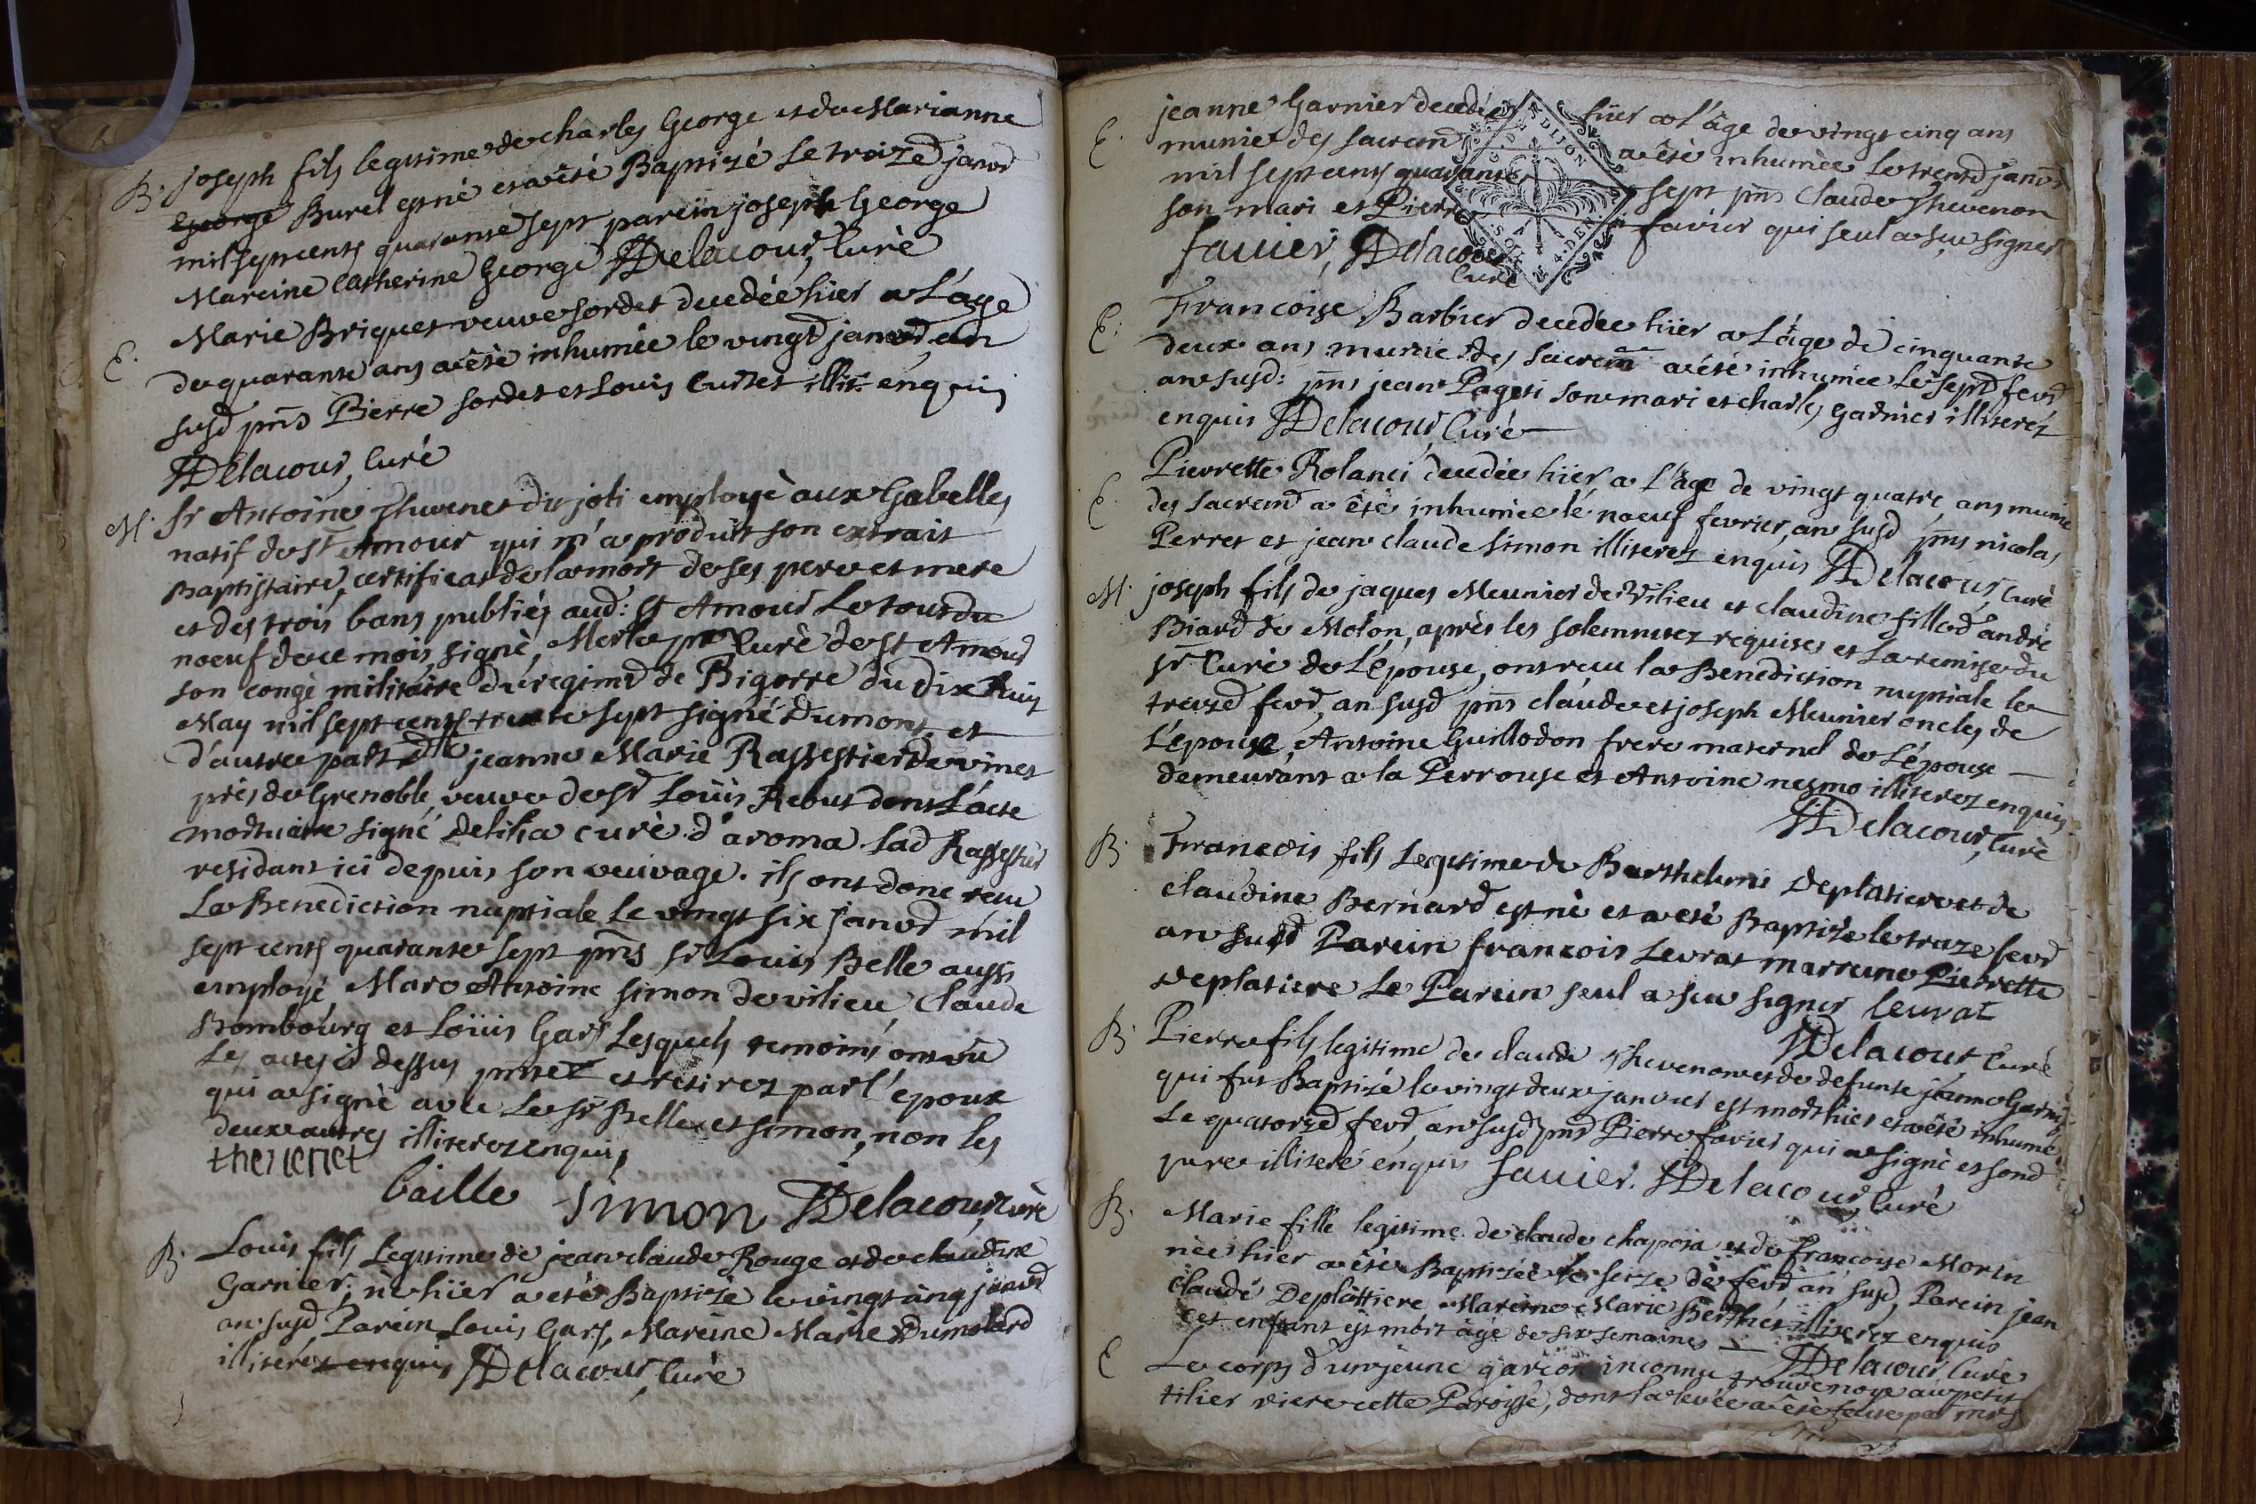 B. joseph fils legitime de charles George et de Marianne
George Burel est né et a été Baptizé le treized janvd
mil sept cents quarante sept parein joseph George
Mareine Catherine George JDelacour, Curé
E. Marie Briquet veuve sordet decedée hier a L'age
de quarante ans a été inhumée le vingtd janvd, an
susd pñs Pierre sordet et Louis Cuitet illit: enquis
JDelacour, Curé
M. Sr Antoine Thevenet du joli employé aux Gabelles
natif de St Amour qui m'a produit son extrait
Baptistaire, certificat de la mort de ses pere et mere
et des trois bans publiés aud: St Amour Le tout du
noeuf de ce mois, signé, Merle Curé de St Amour
son congé militaire du regimd de Bigorre du dix huit
May mil sept cents trente sept signé Dumont, et
d'autre part jeanne Marie Rassestier de vinet
près de Grenoble, veuve de Sr Loüis Rebut dont L'acte
mortuaire signé Delilia curé d'aroma lad Rassestier
residant ici depuis son veuvage. ils ont donc recu
La Benediction nuptiale Le vingt six janvd mil
sept cents quarante sept pñs Sr Louis Belle aussi
employé, Marc Antoine simon de vilieu, Claude
Bombourg et Loüis Gars Lesquels temoins ont vu
Les actes ci dessus et retirez par l'époux
qui a signé avec Le Sr Belle et simon, non les
deux autres illiterez enquis
thevenet
baille simon JDelacour, curé
B. Louis fils Legitime de jean claude Rouge et de claudine
Garnier, né hier a eté Baptizé le vingt cinq janvd
an susd, Parein Louis Gars, Mareine Marie Dumolard
illiterez enquis JDelacour, Curé
E. jeanne Garnier decedée hier a l'âge de vingt cinq ans
munie des sacremd a été inhumée le trented janvr
mil sept cents quarante sept pñs Claude Thevenon
son mari et Pierre favier qui seul a sçu signer
favier, JDelacour
Curé
E. Francoise Barbier decedée hier a L'âge de cinquante
deux ans munie des sacrem a été inhumée Le septd fevd
an susd: pñs jean Pageti son mari et charles Garnier illiterez
enquis JDelacour, Curé
E. Pierrette Rolanci decedée hier a L'âge de vingt quatre ans munie
des sacremd a été inhumée le noeuf fevrier, an susd pñs nicolas
Perret et jean claude simon illiterez enquis JDelacour, Curé
M. joseph fils de jaques Meunier de vilieu et claudine fille d'andré
Biard de Molon, aprés les solemnitez requises et la remise du
Sr Curé de L'épouse, ont recu la Benediction nuptiale le
treized fevd, an susd pñs claude et joseph Meunier oncles de
L'épouse, Antoine Guillodon frere maternel de L'épouse
demeurant a la Perrouse et Antoine nesmo illiterez enquis
JDelacour, Curé
B. Francois fils Legitime de Barthelemi Deplatiere et de
claudine Bernard est né et a eté Baptizé le treize fevd
an susd Parein francois Levrat marreine Pierrette
Deplatiere Le Parein seul a scu signer leurat
JDelacour, Curé
B. Pierre fils legitime de claude Thevenon et de defunte jeanne Garnier
qui fut Baptizé le vingt deux janvier est mort hier et a été inhumé
Le quatorzed fevd, an susd pñs Pierre favier qui a signé et sond
pere illiteré enquis favier. JDelacour, Curé
B. Marie fille legitime de claude chapoja et de francoise Morin
née hier a été Baptizée le seize de fevd, an susd, Parein jean
claude Deplattiere Mareine Marie Berthet illiterez enquis
Cet enfant est mort âgé de six semaines JDelacour, Curé
E Le corps d'un jeune garçon inconnu trouvé noyé au petit
tilier riere cette Paroisse, dont la levée a été faite par